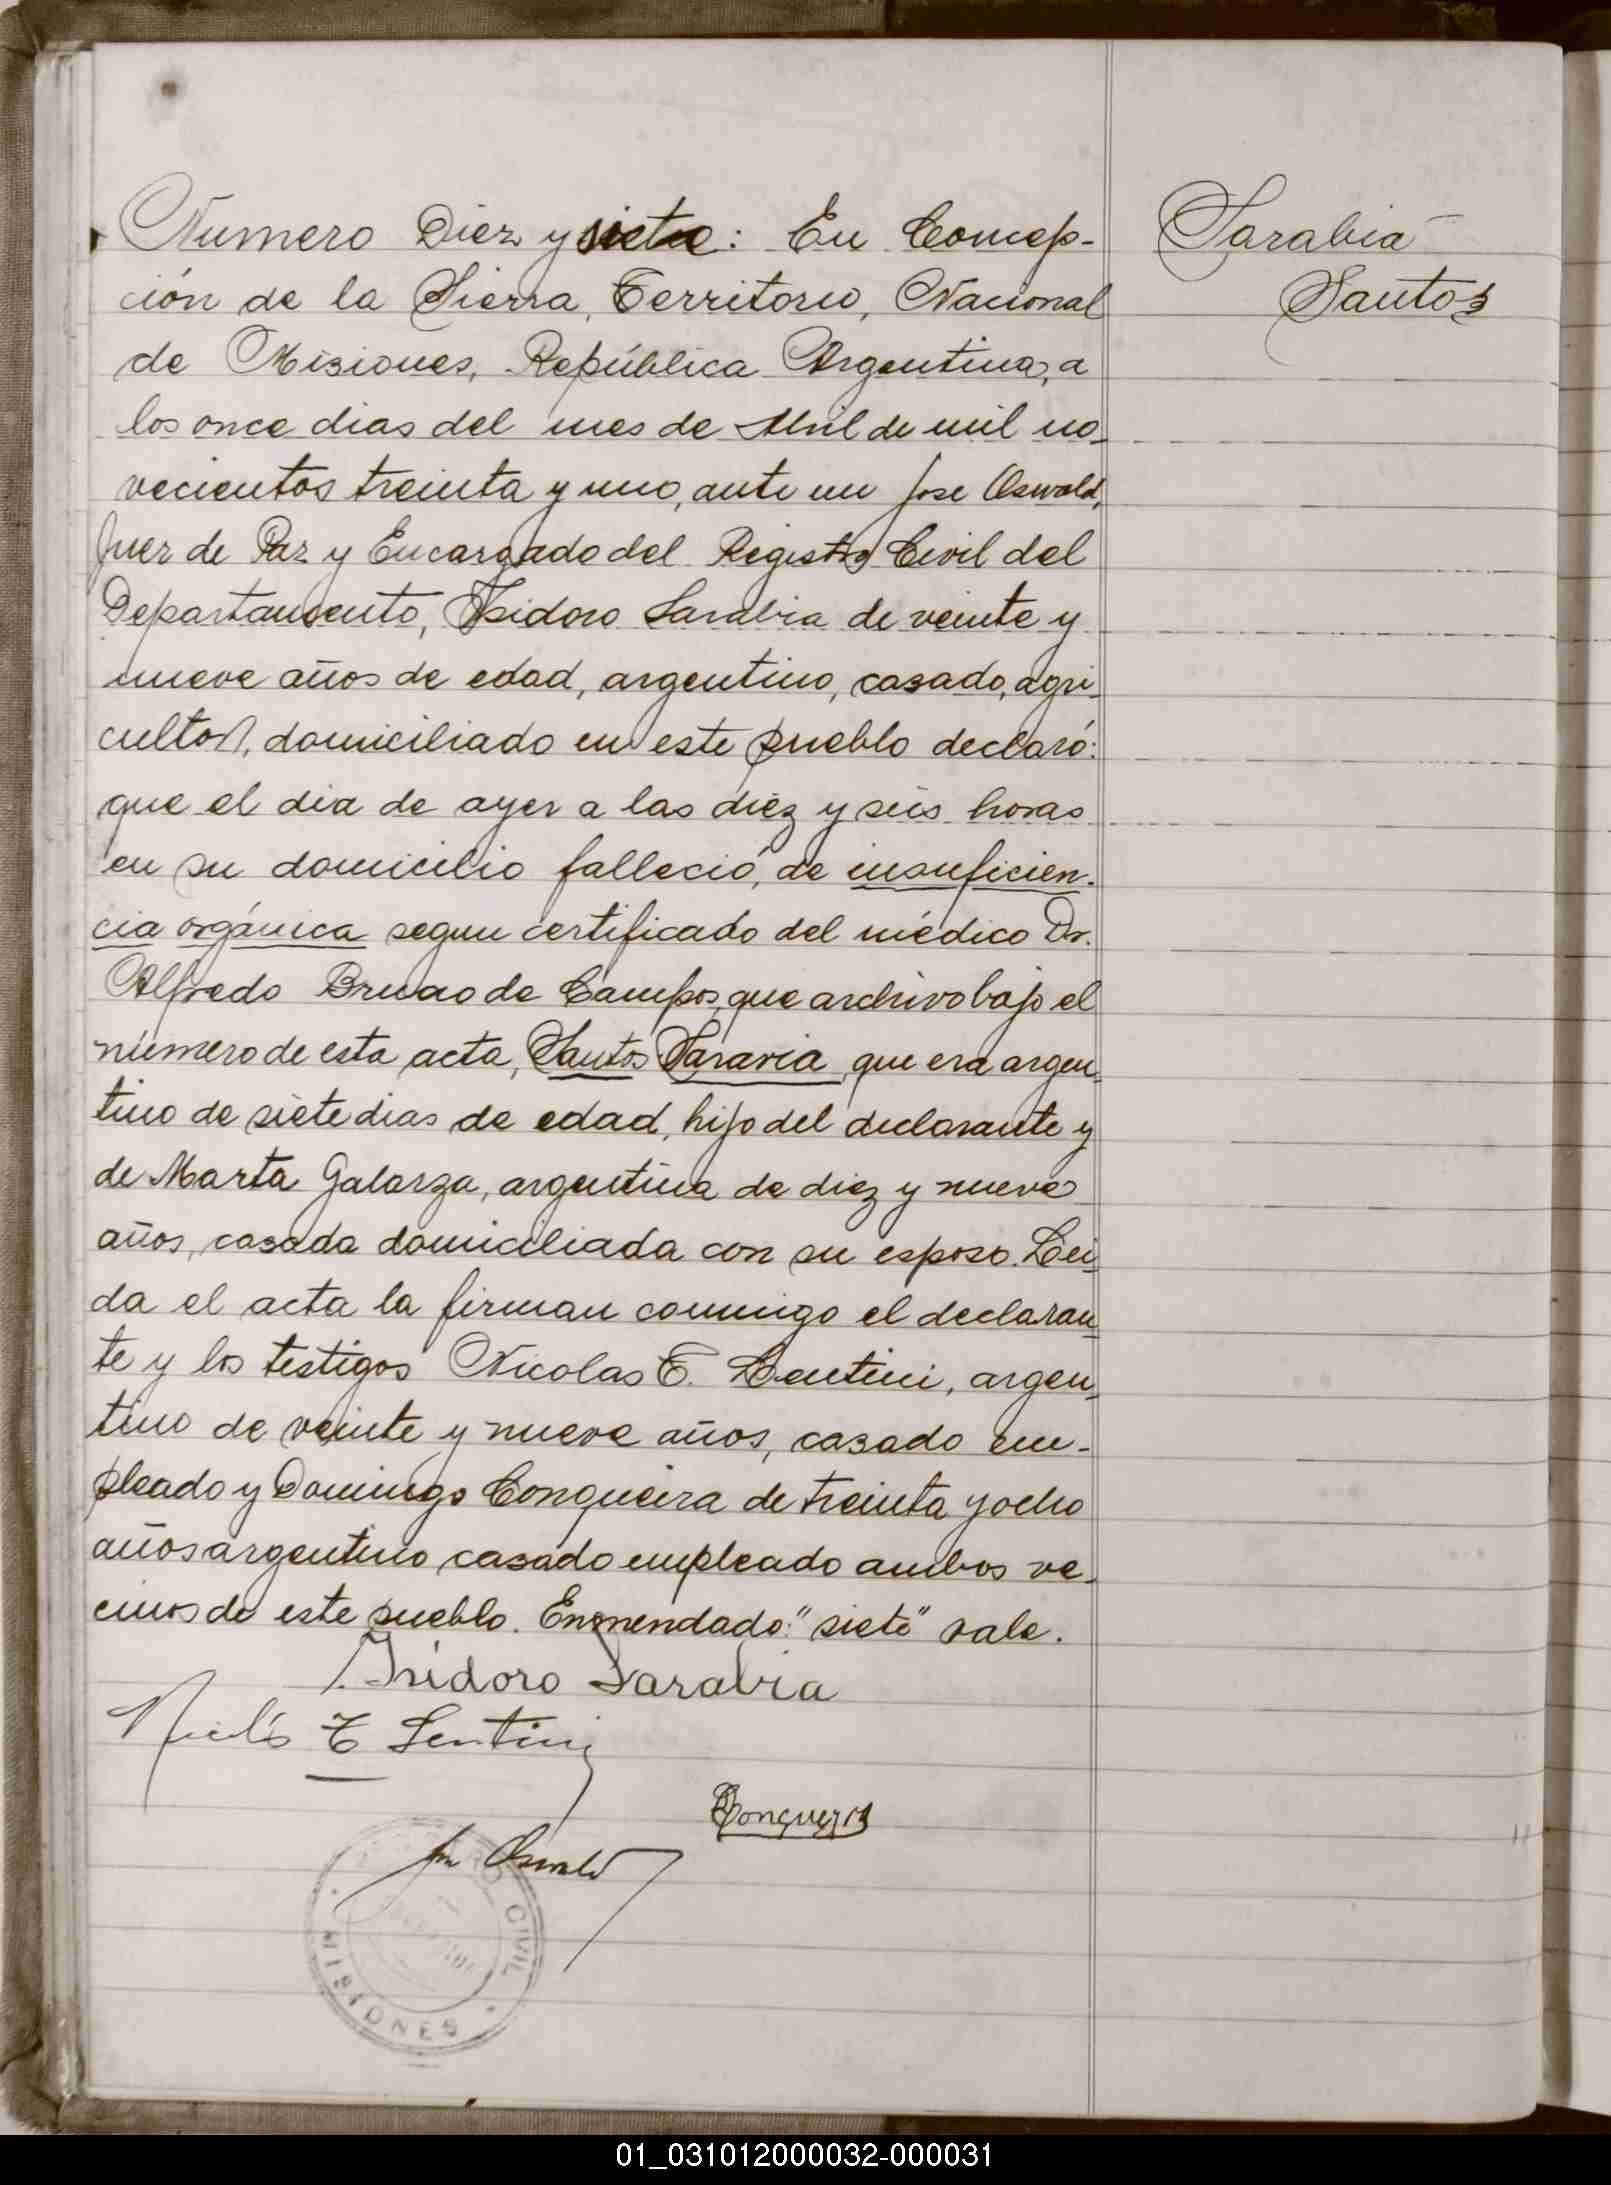 Número Diez y siete: En Concep-
ción de la Sierra, Territorio, Nacional
de Misiones, República Argentina, a
los once dias del mes de Abril de mil no-
vecientos treinta y uno, ante mi Jose Oswald,
Juez de Paz y Encargado del Registro Civil del
Departamento, Isidoro Sarabia de veinte y
nueve años de edad, argentino, casado, agri-
cultor, domiciliado en este pueblo declaró:
que el dia de ayer a las diez y seis horas
en su domicilio falleció, de insuficien-
cia orgánica segun certificado del médico Dr.
Alfredo Bruno de Campos, que archivo bajo el
número de esta acta, Santos Saravia, que era argen-
tino de siete dias de edad, hijo del declarante y
de Marta Galarza, argentina de diez y nueve
años, casada domiciliada con su esposo. Lei-
da el acta la firman conmigo el declaran-
te y los testigos Nicolas T. Lentini, argen-
tino de veinte y nueve años, casado em-
pleado y Domingo Conqueira de treinta y ocho
años argentino casado empleado ambos ve-
cinos de este pueblo. Enmendado: "siete" vale.
Sarabia
Santos
Isidoro Sarabia
Nicolás T Lentini
Jose Oswald
CIVIL
MISIONES
01_031012000032-000031